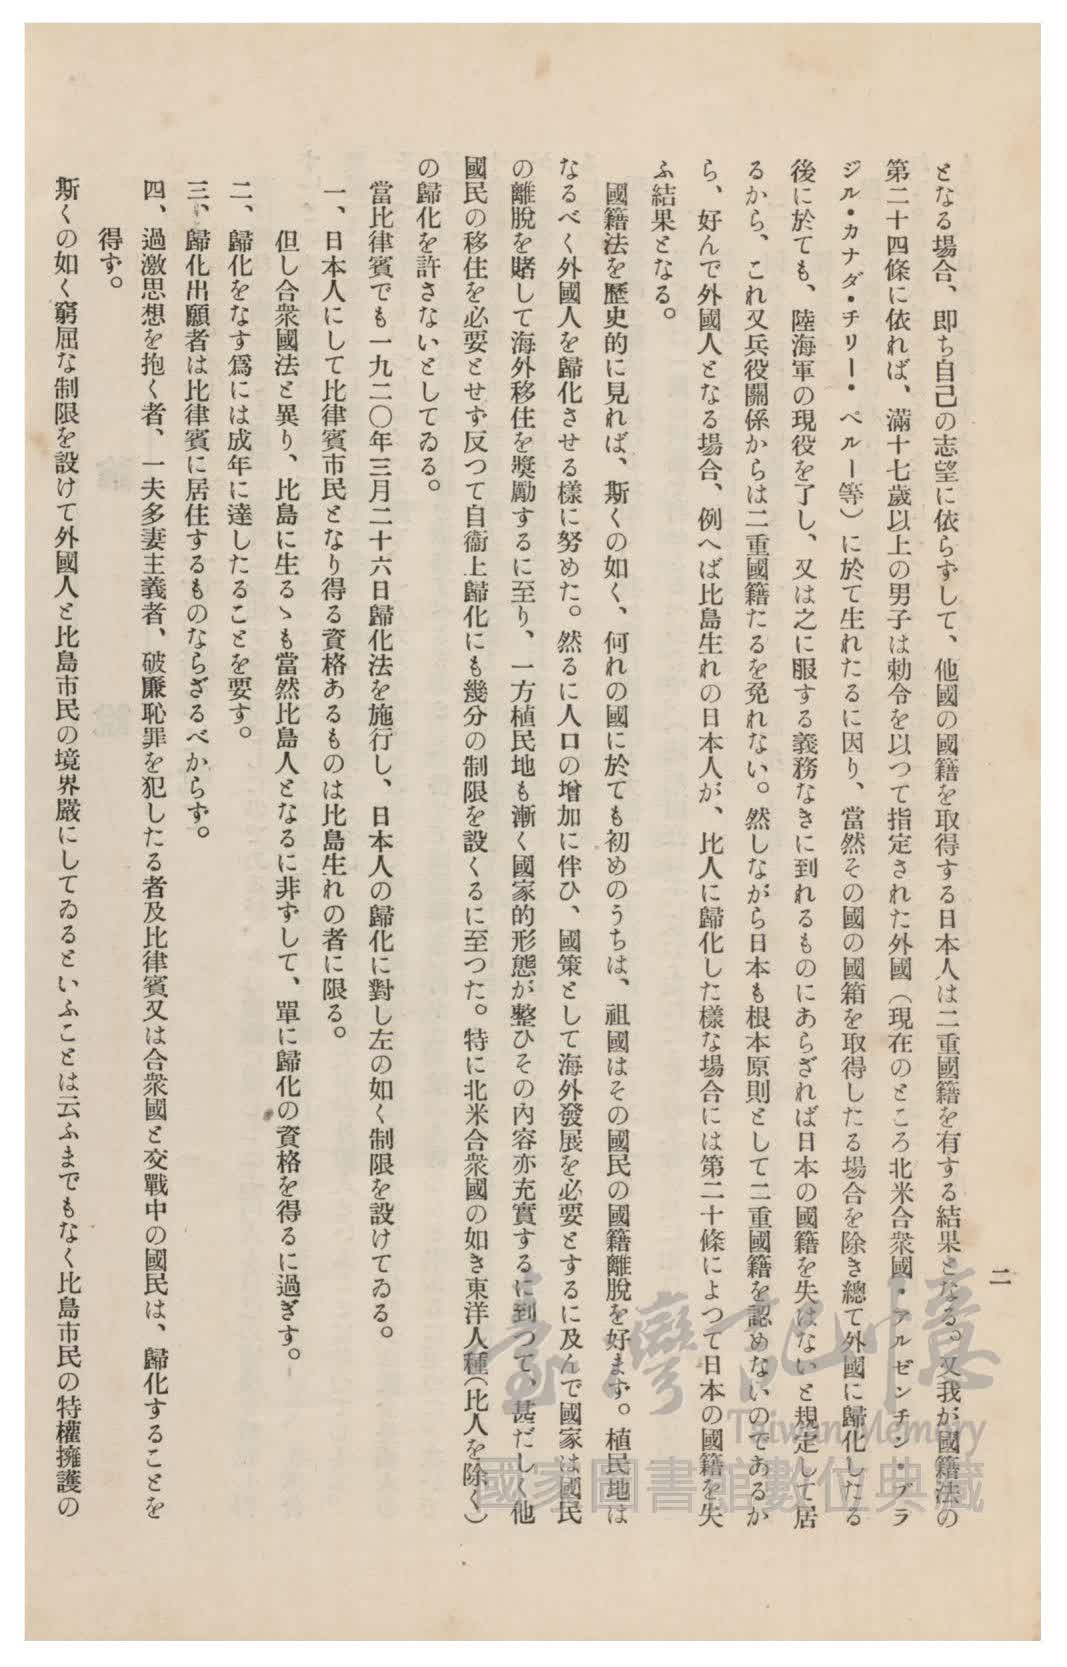 二
となる場合、即ち自己の志望に依らずして、他國の國籍を取得する日本人は二重國籍を有する結果となる。又我が國籍法の
第二十四條に依れば、滿十七歲以上の男子は勅令を以つて指定された外國（現在のところ北米合衆國・アルゼンチン・ブラ
ジル・カナダ・チリー・ペルー等）に於て生れたるに因り、當然その國の國箱を取得したる場合を除き總て外國に歸化したる
後に於ても、陸海軍の現役を了し、又は之に服する義務なきに到れるものにあらざれば日本の國籍を失はないと規定して居
るから、これ又兵役關係からは二重國籍たるを免れない。然しながら日本も根本原則として二重國籍を認めないのであるか
ら、好んで外國人となる場合、例へば比島生れの日本人が、比人に歸化した樣な場合には第二十條によつて日本の國籍を失
ふ結果となる。
國籍法を歷史的に見れば、斯くの如く、何れの國に於ても初めのうちは、祖國はその國民の國籍離脫を好まず。植民地は
なるべく外國人を歸化させる樣に努めた。然るに人口の增加に伴ひ、國策として海外發展を必要とするに及んで國家は國民
の離脫を賭して海外移住を獎勵するに至り、一方植民地も漸く國家的形態が整ひその內容亦充實するに到つて、甚だしく他
國民の移住を必要とせず反つて自衞上歸化にも幾分の制限を設くるに至つた。特に北米合衆國の如き東洋人種（比人を除く）
の歸化を許さないとしてゐる。
當比律賓でも一九二〇年三月二十六日歸化法を施行し、日本人の歸化に對し左の如く制限を設けてゐる。
一、日本人にして比律賓市民となり得る資格あるものは比島生れの者に限る。
但し合衆國法と異り、比島に生るゝも當然比島人となるに非ずして、單に歸化の資格を得るに過ぎす。
二、歸化をなす爲には成年に達したることを要す。
三、歸化出願者は比律賓に居住するものならざるべからず。
四、過激思想を抱く者、一夫多妻主義者、破廉恥罪を犯したる者及比律賓又は合衆國と交戰中の國民は、歸化することを
得ず。
斯くの如く窮屈な制限を設けて外國人と比島市民の境界嚴にしてゐるといふことは云ふまでもなく比島市民の特權擁護の
臺灣記憶
Taiwan Memory
國家圖書館數位典藏